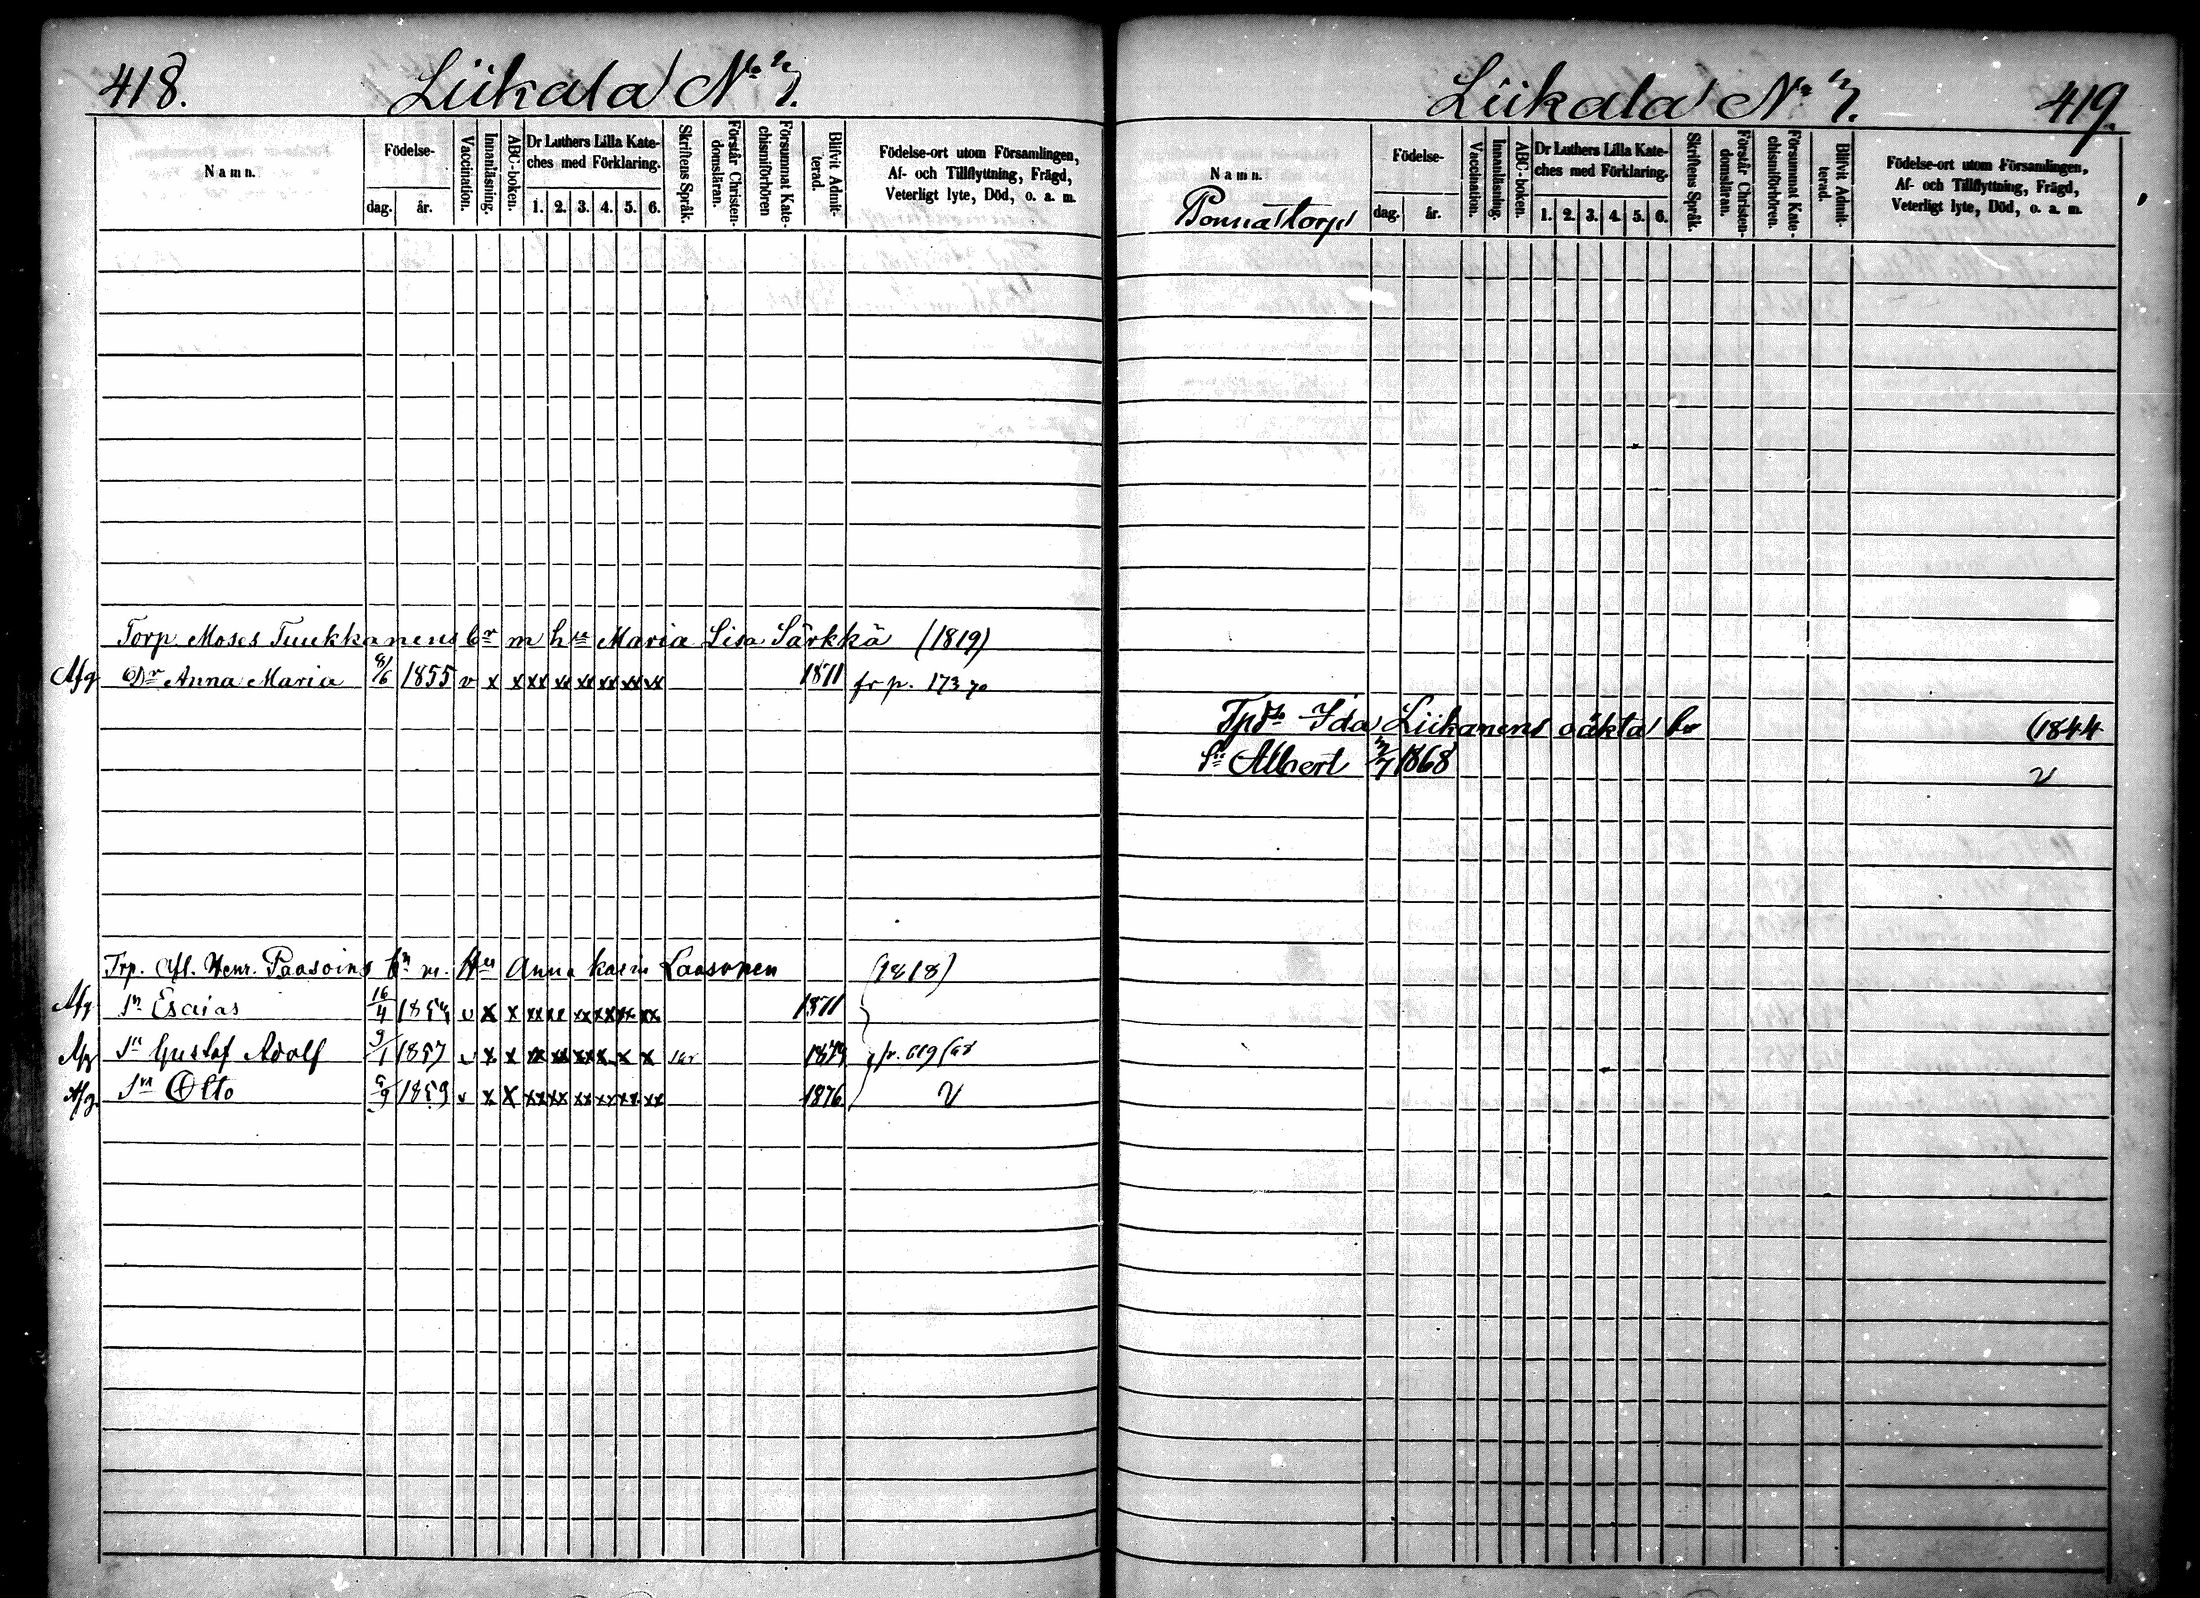 418.
Liikala No 7.
Namn.
Födelse-
dag.
år.
Vaccination.
Innanläsning.
ABC-boken.
Dr Luthers Lilla Kate-
ches med Förklaring.
1. 2. 3. 4. 5. 6.
Skriftens Språk.
Förstår Christen-
domsläran.
Försummat Kate-
chismiförhören
Blifvit Admit-
terad.
Födelse-ort utom Församlingen,
Af- och Tillflyttning, Frägd,
Veterligt lyte, Död, o. a. m.
Torp. Moses Tuukkanens br m hu Maria Lisa Särkkä (1819)
Afg Dr Anna Maria 8/6 1855 v x x xx xx xx xx xx xx 1871 fr p. 173 70
Trp. Afl. Henr. Paasoins bn m. Hu Anna Karin Laasonen (1818)
Afg Sn Esaias 16/4 1854 v x x xx xx xx xx xx xx 1871
Afg Sn Gustaf Adolf 9/1 1857 v x x xx xx xx x x x 1879
Afg. Sn Otto 1859 v x x xx xx xx xx xx xx 1876. v
Liikala No 7.
419.
Namn.
Ponnas torp
Födelse-
dag.
år.
Vaccination.
Innanläsning.
ABC-boken.
Dr Luthers Lilla Kate-
ches med Förklaring.
1. 2. 3. 4. 5. 6.
Skriftens Språk.
Förstår Christen-
domsläran.
Försummat Kate-
chismiförhören.
Blifvit Admit-
terad.
Födelse-ort utom Församlingen,
Af- och Tillflyttning, Frägd,
Veterligt lyte, Död, o. a. m.
Tpdr Ida Liikanens oäkta bn (1844
Sn Albert 1868 v